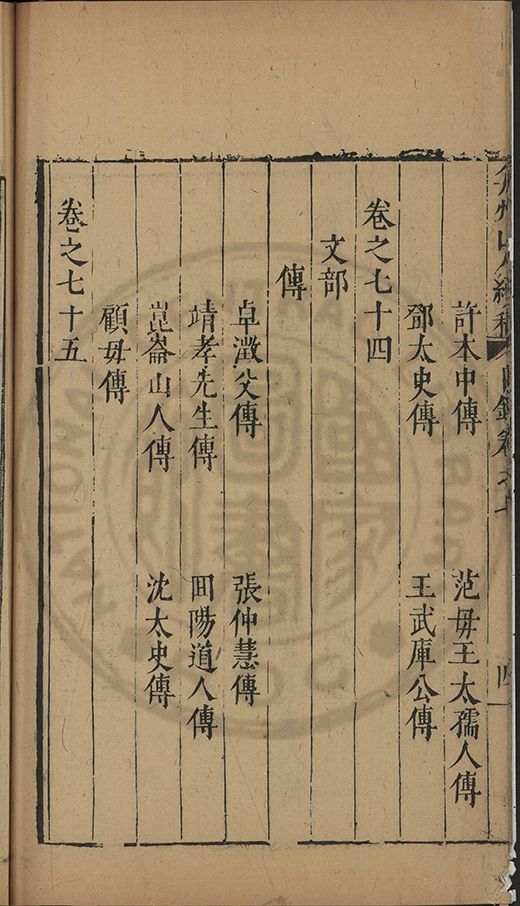 許本中傳 范毋王太孺人傳
鄧太史傳 王武庫公傳
卷之七十四
文部
傳
卓澂父傳 張仲慧傳
靖孝先生傳 回陽道人傳
崑崙山人傳 沈太史傳
顧毋傳
卷之七十五